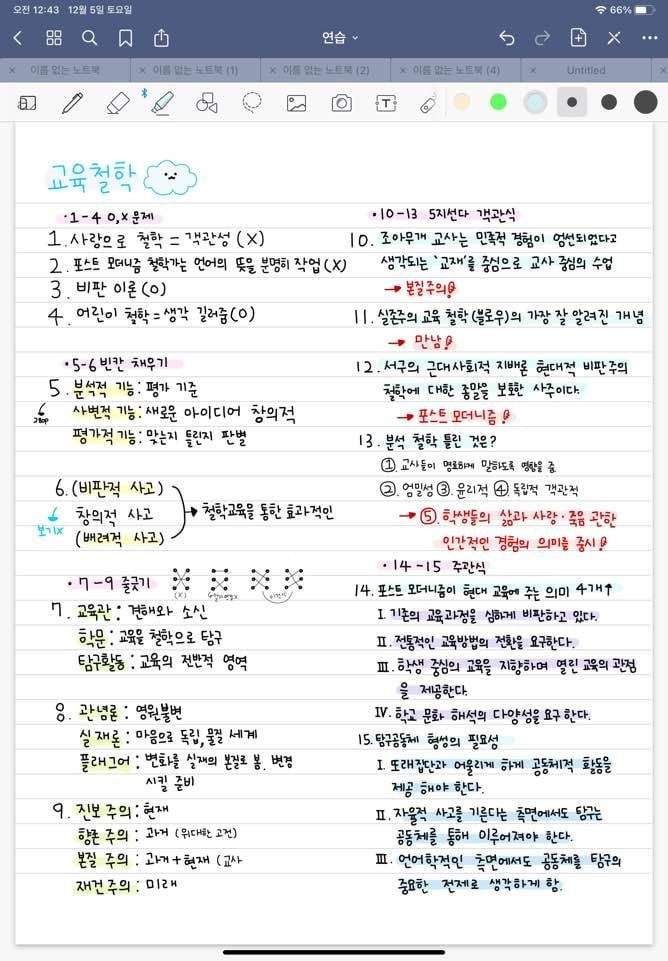 오전 12:43 12월 5일 토요일
66%
연습
이름 없는 노트북
이름 없는 노트북 (1)
이름 없는 노트북 (2)
이름 없는 노트북 (4)
Untitled
교육철학
•1-4 O,X 문제
1. 사랑으로 철학 = 객관성 (X)
2. 포스트 모더니즘 철학가는 언어의 뜻을 분명히 작업 (X)
3. 비판 이론 (O)
4. 어린이 철학 = 생각 길러줌 (O)
•5-6 빈칸 채우기
5. 분석적 기능: 평가 기준
사변적 기능: 새로운 아이디어 창의적
평가적 기능: 맞는지 틀린지 판별
6. (비판적 사고)
창의적 사고 → 철학교육을 통한 효과적인
보기X
(배려적 사고)
•7-9 줄긋기
(X)
7. 교육관: 견해와 소신
학문: 교육을 철학으로 탐구
탐구활동: 교육의 전반적 영역
8. 관념론: 영원불변
실재론: 마음으로 독립, 물질 세계
플래그어: 변화를 실재의 본질로 봄. 변경
시킬 준비
9. 진보 주의: 현재
항존 주의: 과거 (위대한 고전)
본질 주의: 과거+현재 (교사
재건주의: 미래
•10-13 5지선다 객관식
10. 조아무개 교사는 민족적 경험이 엄선되었다고
생각되는 '교재'를 중심으로 교사 중심의 수업
→ 본질주의!
11. 실존주의 교육 철학(볼로우)의 가장 잘 알려진 개념
→ 만남!
12. 서구의 근대사회적 지배론 현대적 비판주의
철학에 대한 종말을 보호한 사조이다.
→ 포스트 모더니즘!
13. 분석 철학 틀린 것은?
① 교사들이 명료하게 말하도록 영향을 줌
②. 엄밀성 ③. 윤리적 ④ 독립적 객관적
→ ⑤. 학생들의 삶과 사랑·죽음 관한
인간적인 경험의 의미를 중시!
•14-15 주관식
14. 포스트 모더니즘이 현대 교육에 주는 의미 4개↑
I. 기존의 교육과정을 심하게 비판하고 있다.
II. 전통적인 교육방법의 전환을 요구한다.
III. 학생 중심의 교육을 지향하며 열린 교육의 관점
을 제공한다.
IV. 학교 문화 해석의 다양성을 요구 한다.
15. 탐구공동체 형성의 필요성
I. 또래집단과 어울리게 하게 공동체적 활동을
제공 해야 한다.
II. 자율적 사고를 기른다는 측면에서도 탐구는
공동체를 통해 이루어져야 한다.
III. 언어학적인 측면에서도 공동체를 탐구의
중요한 전제로 생각하게 함.